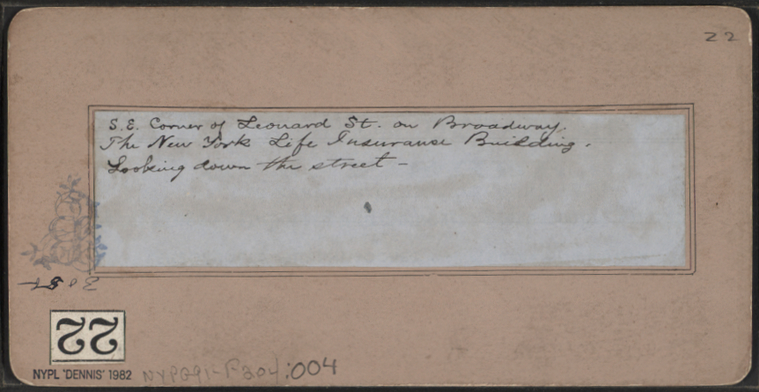 22
S.E. Corner of Leonard St. on Broadway.
The New York Life Insurance Building.
Looking down the street -
22
NYPL 'DENNIS' 1982
NYPG91-F204:004